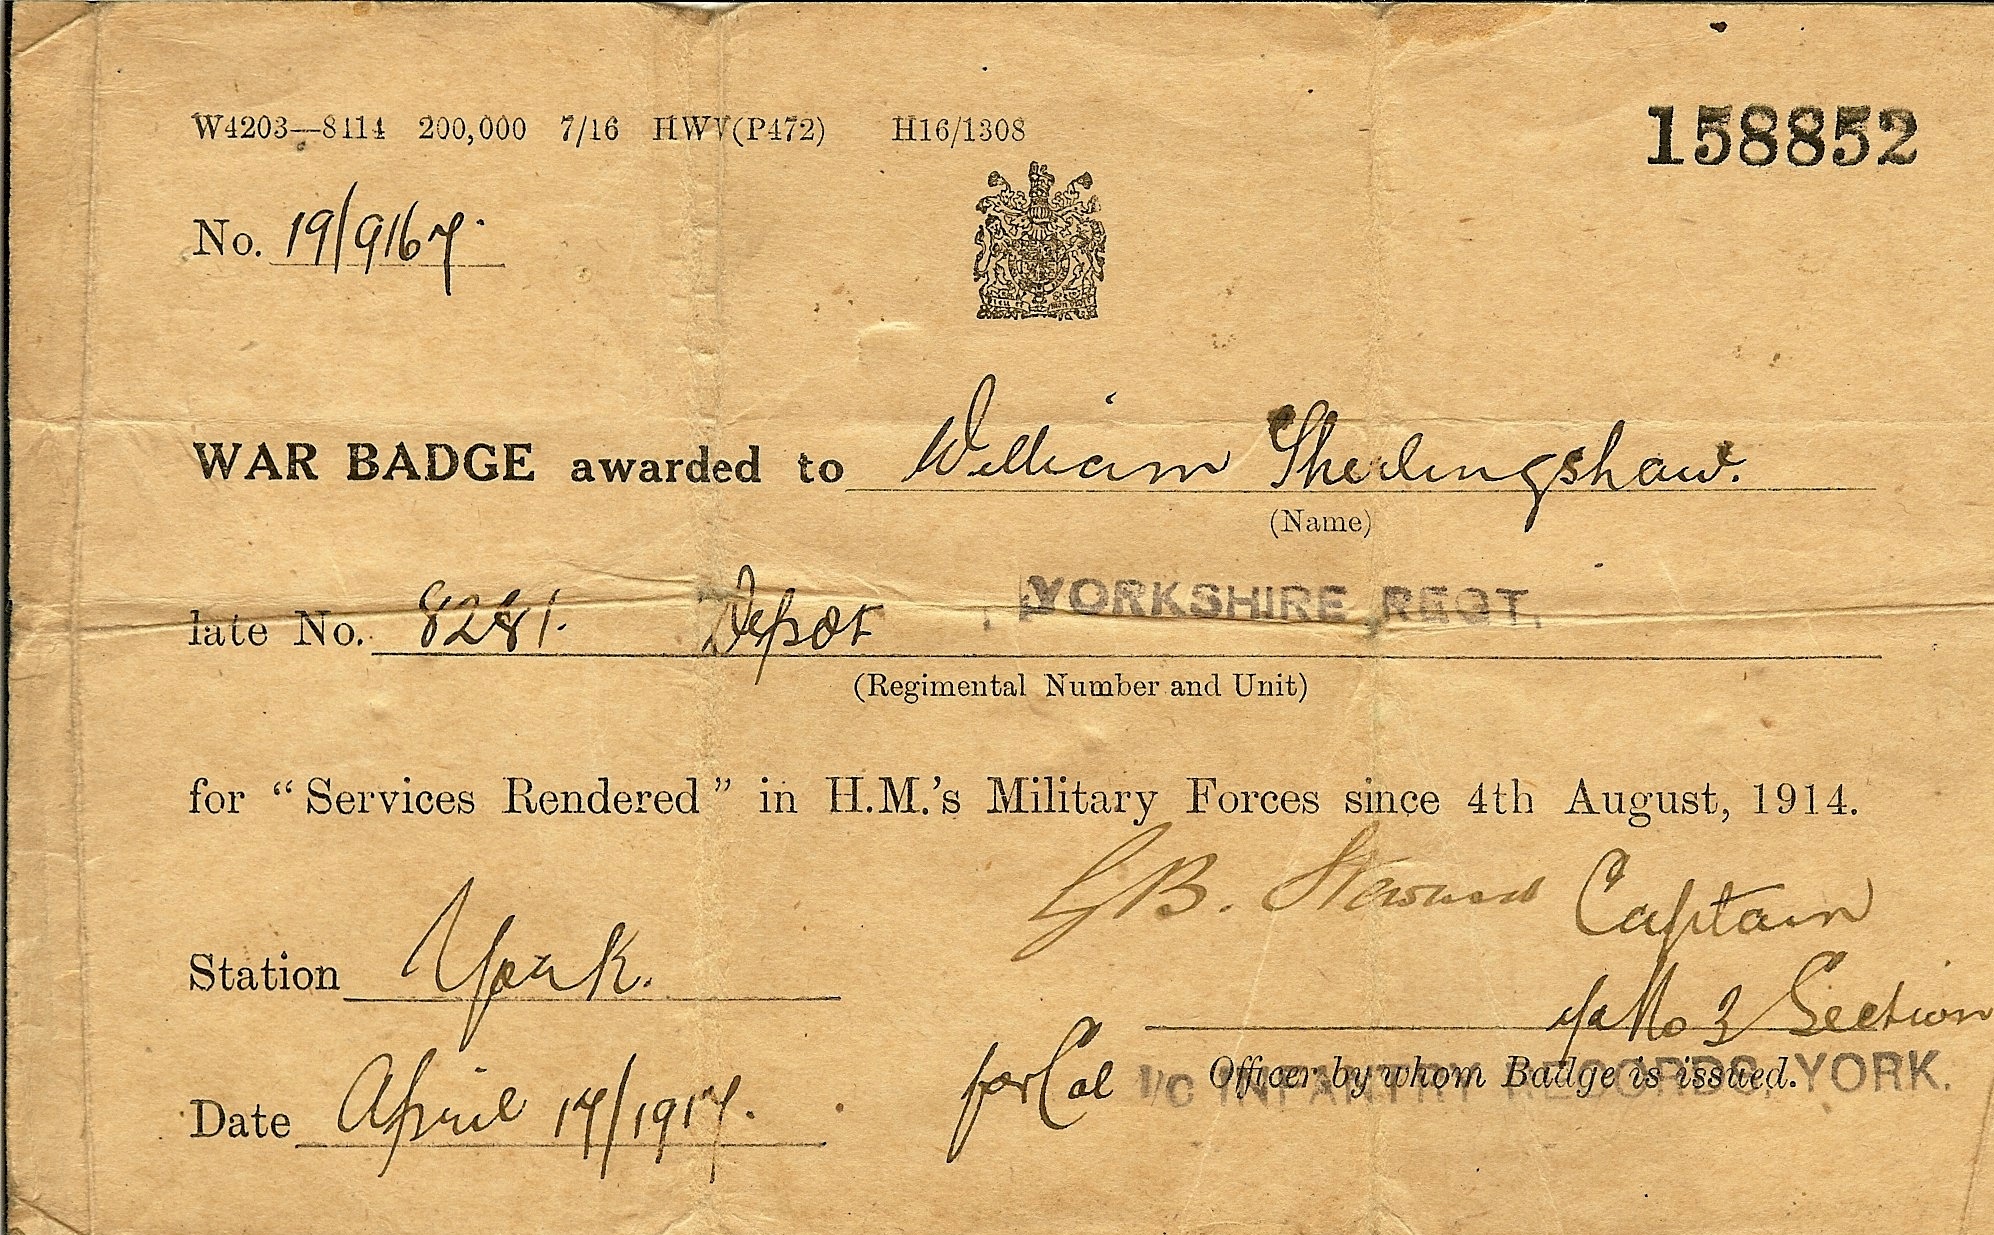 W4203—8114 200,000 7/16 HWV(P472) H16/1308
158852
No. 19/9167.
WAR BADGE awarded to William Sherlingshaw.
(Name)
late No. 8281. Depot YORKSHIRE REGT.
(Regimental Number and Unit)
for "Services Rendered" in H.M.'s Military Forces since 4th August, 1914.
G B. Captain
Station York.
No 3 Section
for Col I/C INFANTRY RECORDS, YORK.
Officer by whom Badge is issued.
Date April 17/1917.